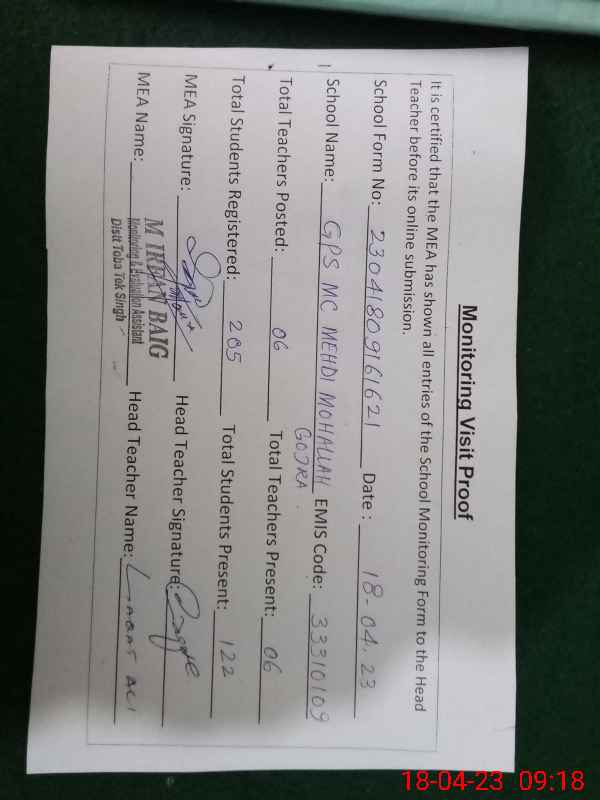 Monitoring Visit Proof
It is certified that the MEA has shown all entries of the School Monitoring Form to the Head
Teacher before its online submission.
School Form No: 230418091 61621 Date : 18-04.23
School Name: GPS MC MEHDI MOHALLAH EMIS Code: 33310109
GOJRA.
Total Teachers Posted: 06 Total Teachers Present: 06
Total Students Registered: 205 Total Students Present: 122
MEA Signature: Head Teacher Signature:
MEA Name: M IRFAN BAIG Head Teacher Name: Liaqat Ali
Monitoring & Evaluation Assistant
Distt Toba Tek Singh
18-04-23 09:18